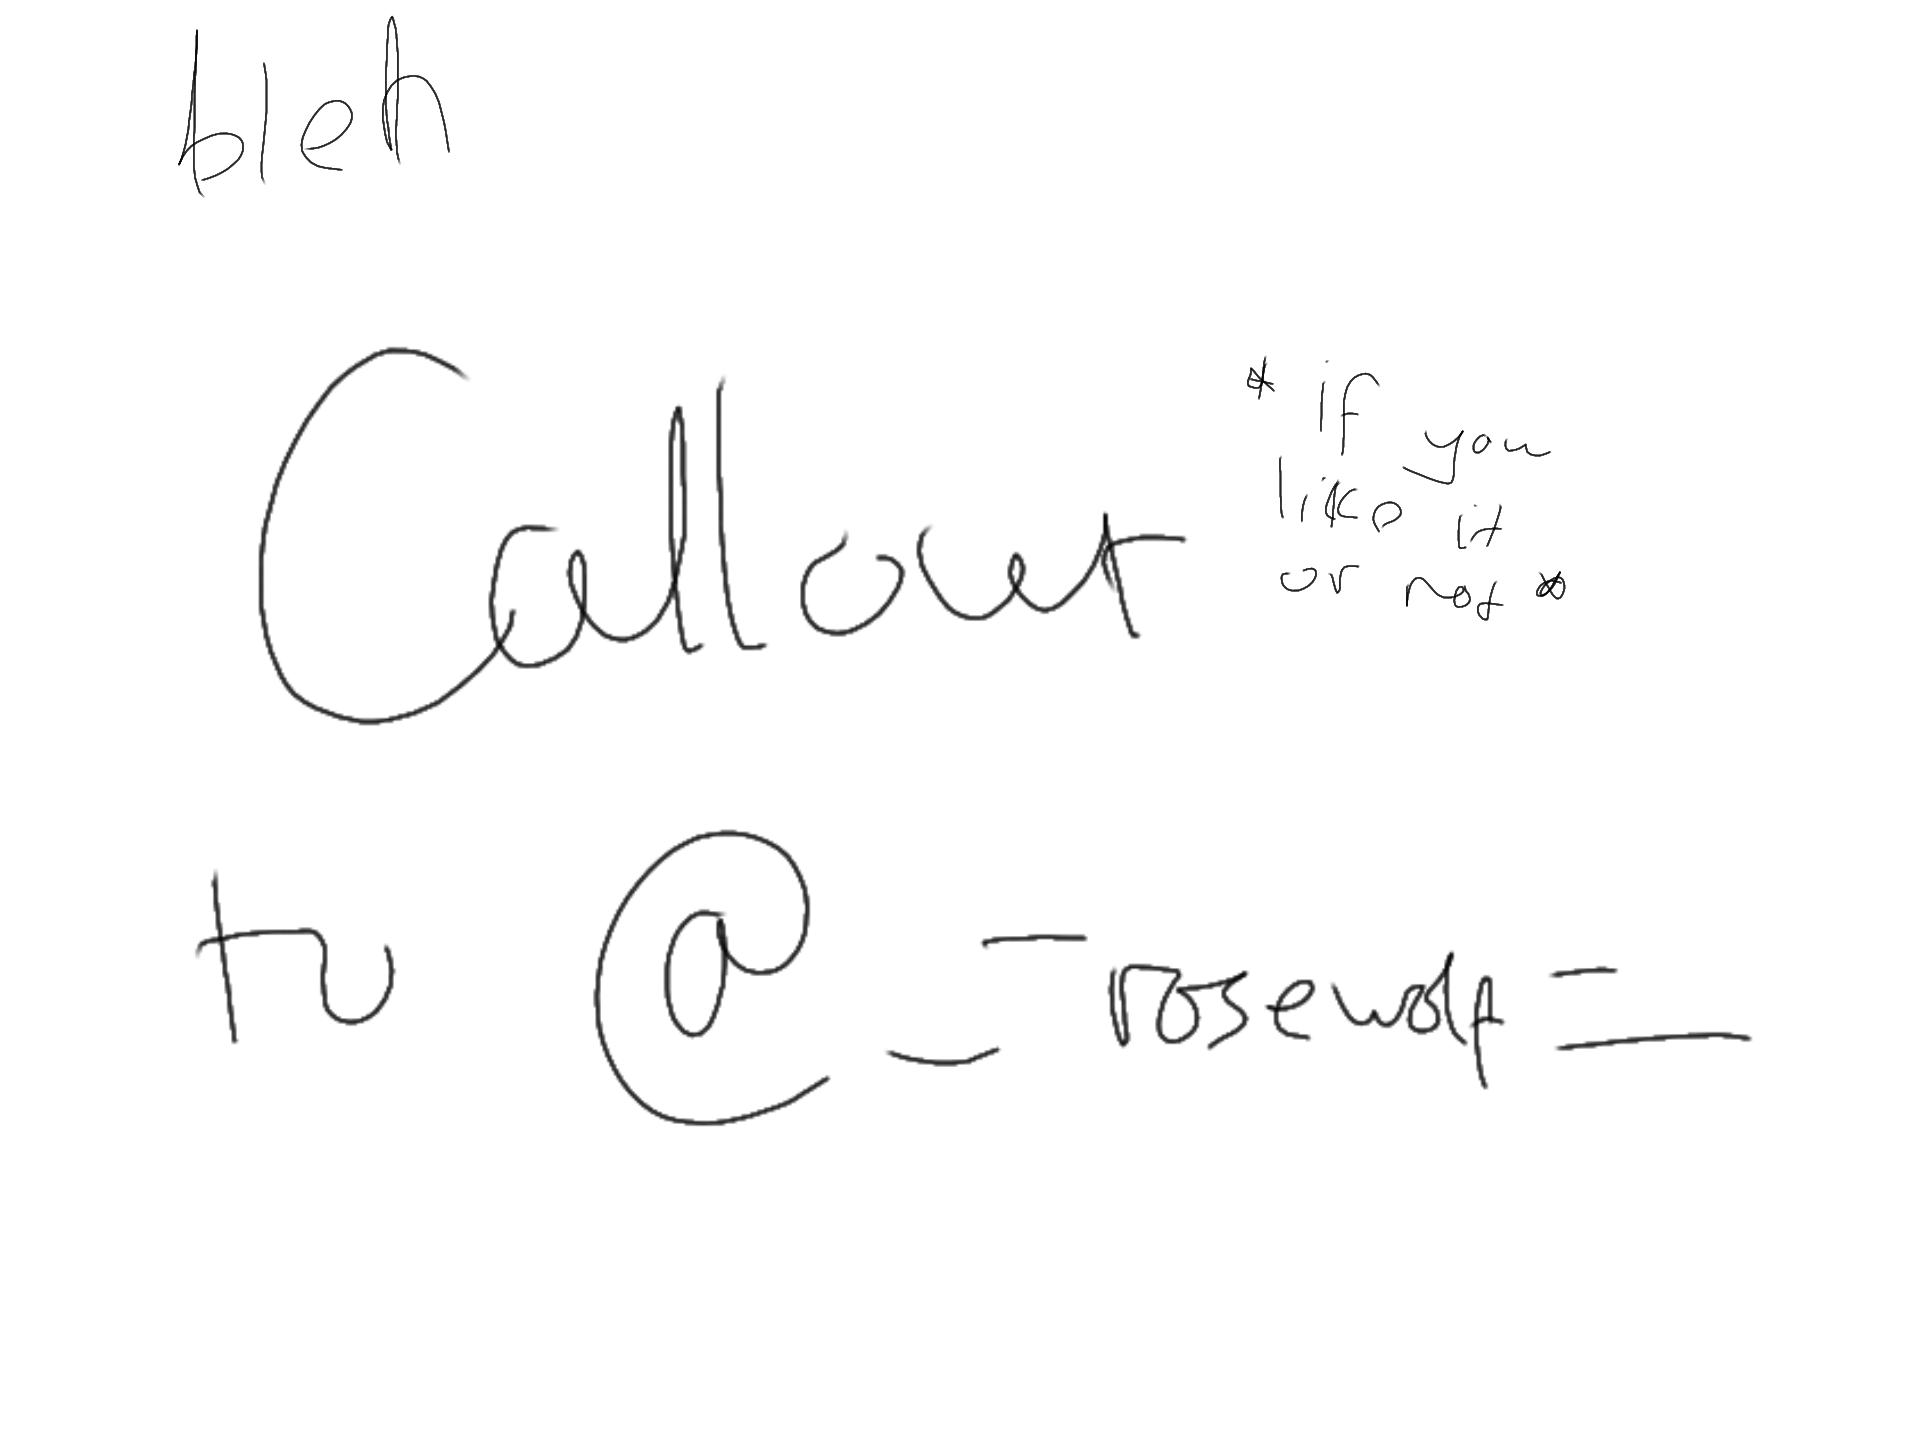 bleh
Callout
* if you
like it
or not *
to @_-rosewolf=_